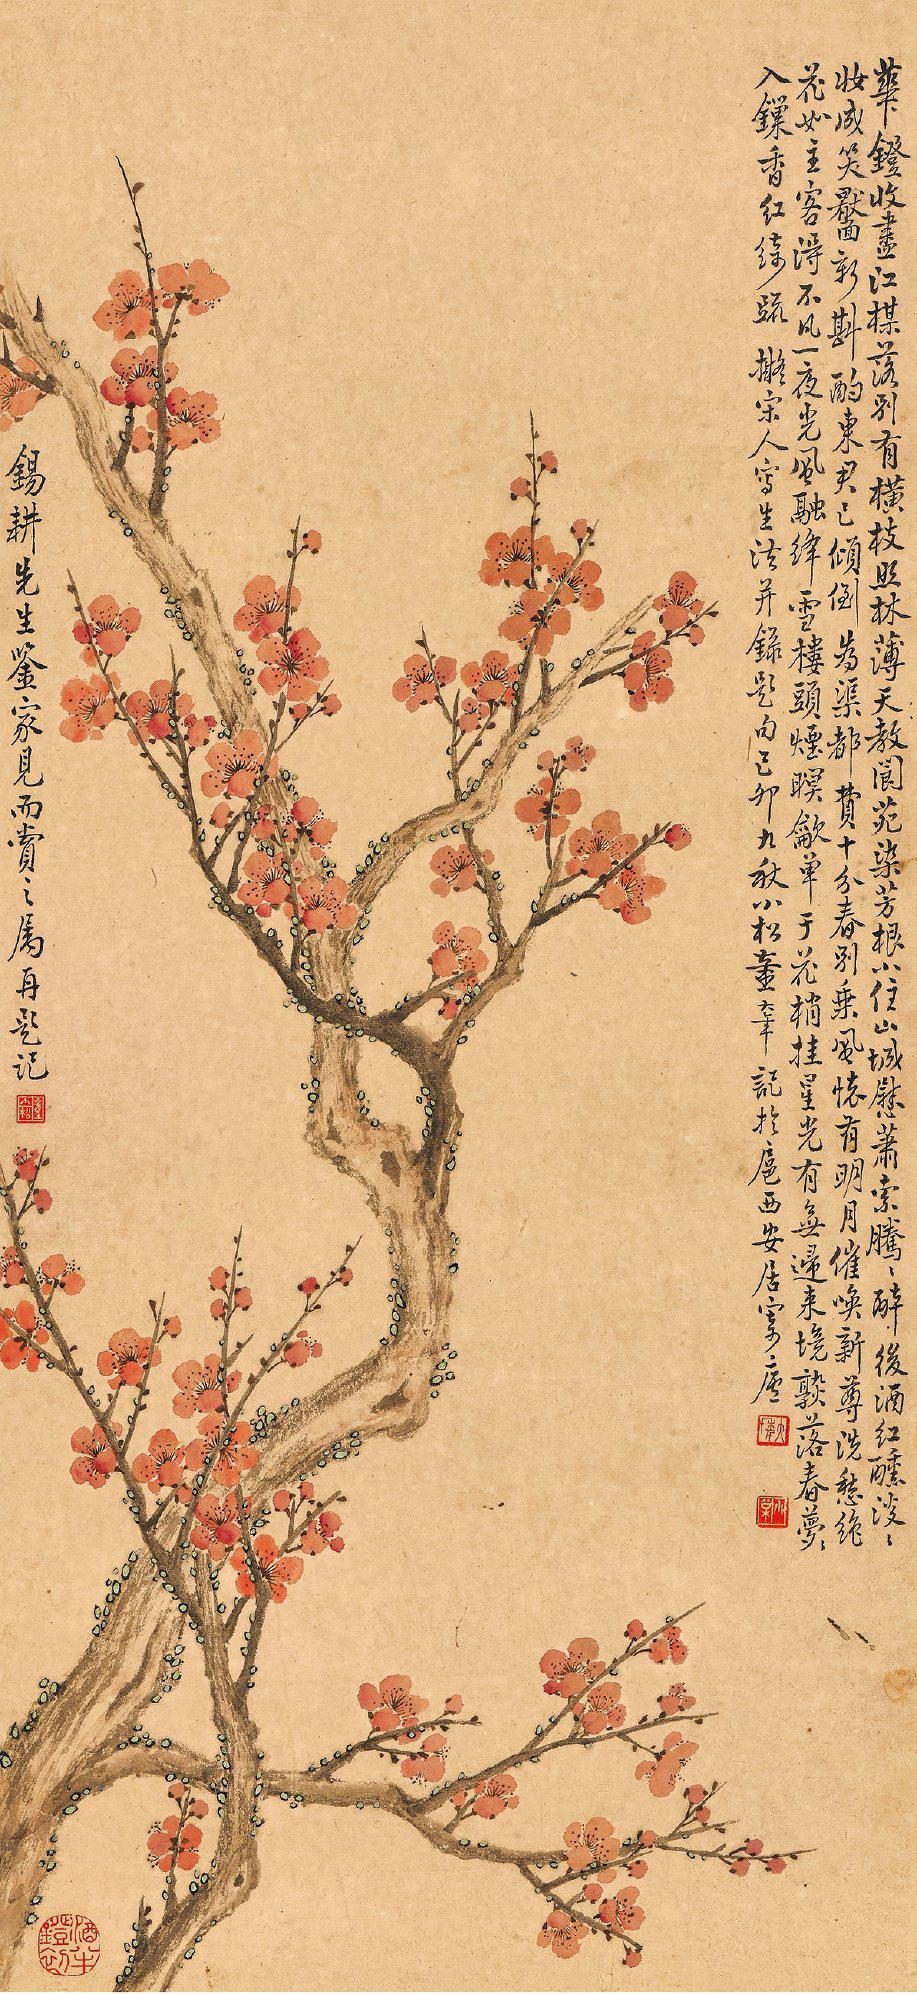 華鐙收盡江楳落別有橫枝照林薄天教閬苑染芳根小住山城慰蕭索騰〻醉後酒紅醺淡〻
妝成笑靨新斟酌東君已傾倒為渠都費十分春別乘風懷有明月催喚新尊洗愁絕
花如主客淂不凡一夜光風融絳雪樓頭煙暝歛單于花梢挂星光有無還来境熟落春夢〻
入鏁香紅綺疏 擬宋人寫生法并錄題句己卯九秋小松 記於扈西安居寄廬
錫耕先生鉴家見而賞之属再題記